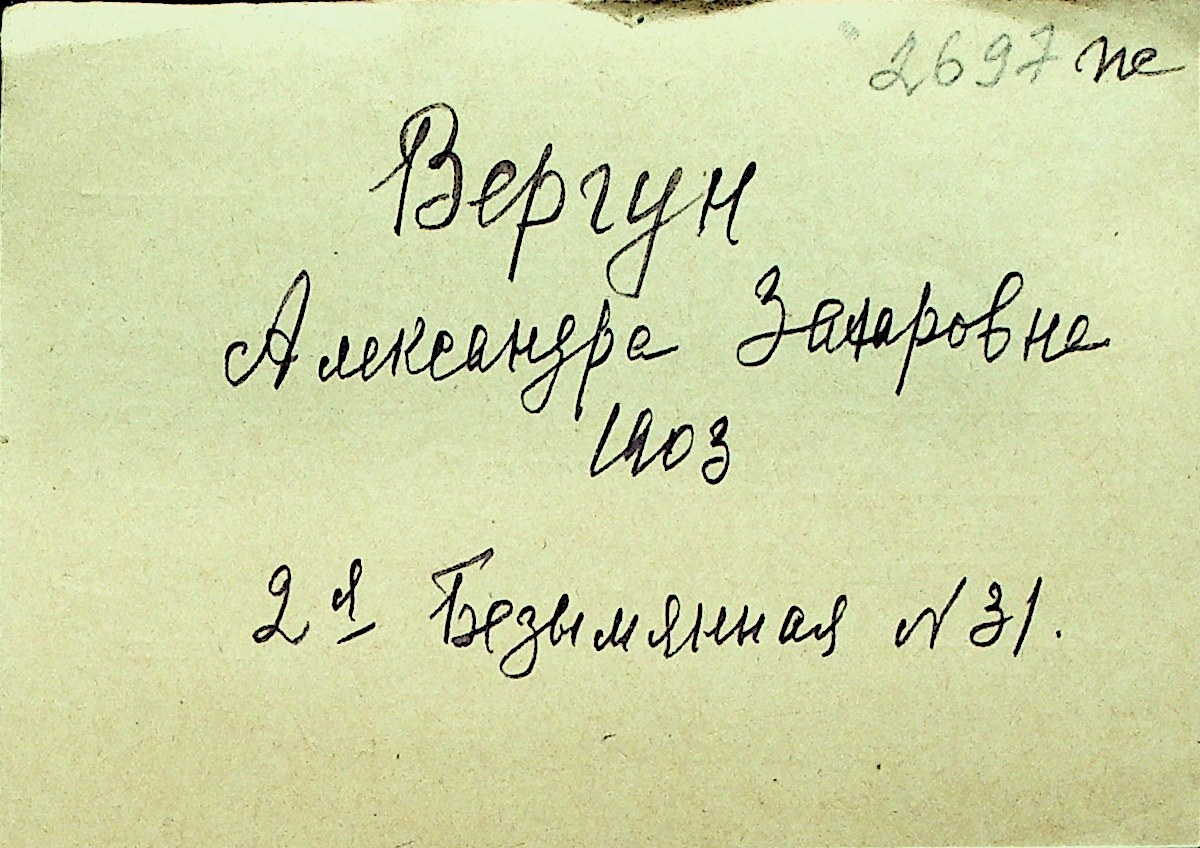 2697 пе
Вергун
Александра Захаровна
1903
2я Безымянная N 31.